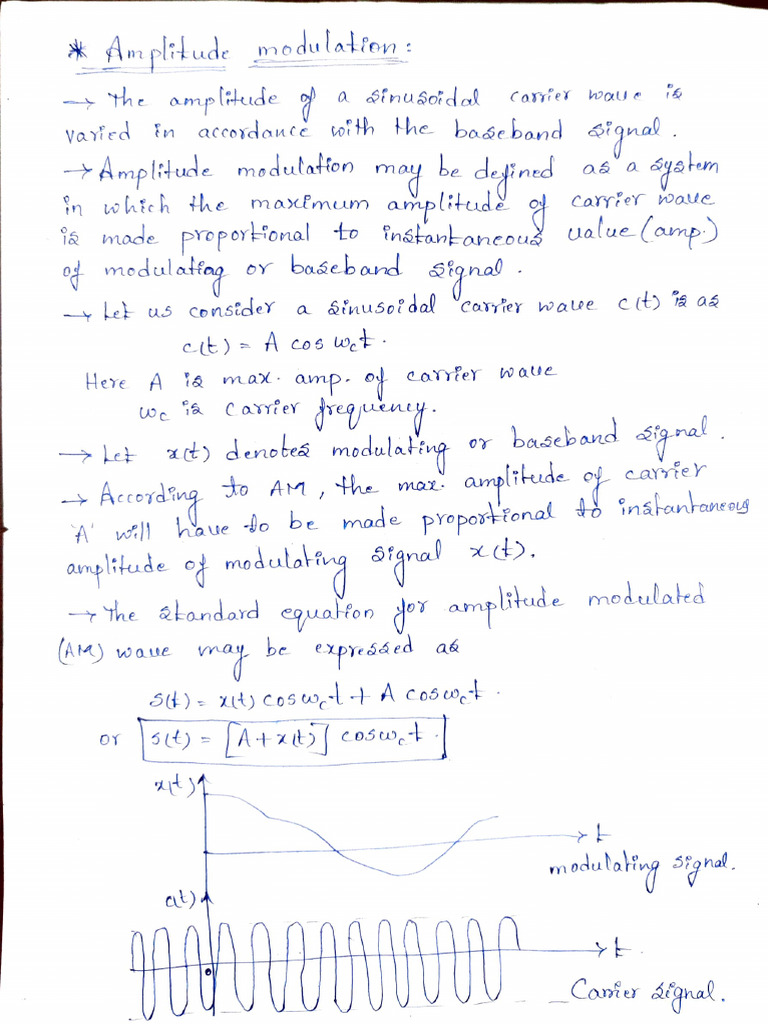 * Amplitude modulation:
→ The amplitude of a sinusoidal carrier wave is
varied in accordance with the baseband signal.
→ Amplitude modulation may be defined as a system
in which the maximum amplitude of carrier wave
is made proportional to instantaneous value (amp.)
of modulating or baseband signal.
→ Let us consider a sinusoidal carrier wave c(t) is as
c(t) = A cos ωct.
Here A is max. amp. of carrier wave
ωc is carrier frequency.
→ Let x(t) denotes modulating or baseband signal.
→ According to AM, the max. amplitude of carrier
'A' will have to be made proportional to instantaneous
amplitude of modulating signal x(t).
→ The standard equation for amplitude modulated
(AM) wave may be expressed as
s(t) = x(t) cos ωct + A cos ωct.
or s(t) = [A + x(t)] cos ωct.
x(t)
t
modulating signal.
c(t)
t
Carrier signal.